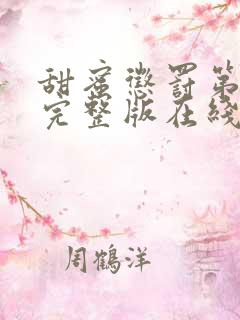 甜蜜懲罰第
完整版在綫
周鶴洋